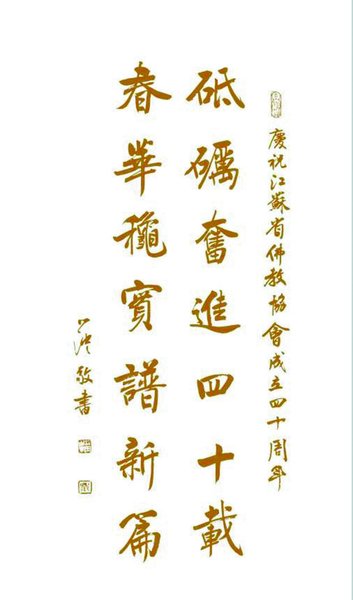 慶祝江蘇省佛教協會成立四十周年
砥礪奮進四十載
春華龝實譜新篇
心澄敬書